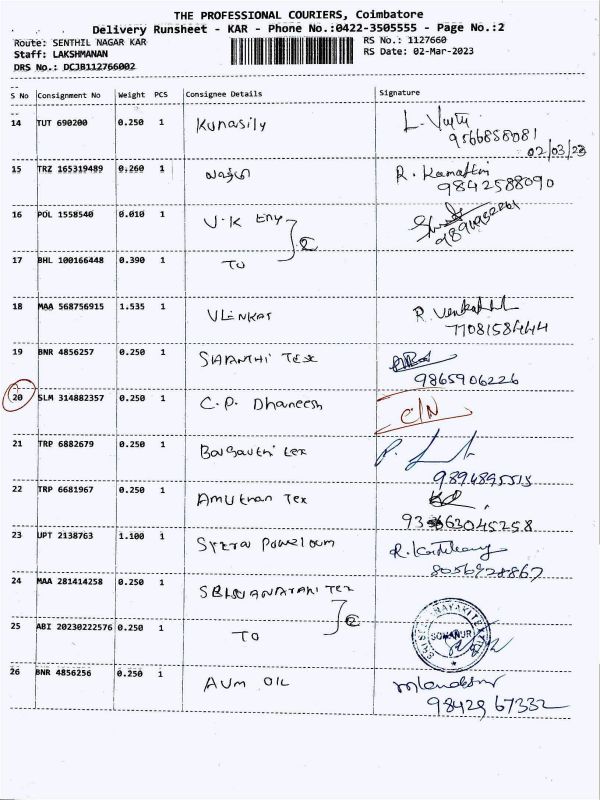 THE PROFESSIONAL COURIERS, Coimbatore
Delivery Runsheet - KAR - Phone No.:0422-3505555 - Page No.:2
Route: SENTHIL NAGAR KAR RS No.: 1127660
Staff: LAKSHMANAN RS Date: 02-Mar-2023
DRS No.: DCJB112766002
S No Consignment No Weight PCS Consignee Details Signature
14 TUT 690200 0.250 1 Kunasily L.
9566858081
02/03/23
15 TRZ 165319489 0.260 1 R.
9842588090
16 POL 1558540 0.010 1 V.K Eny
17 BHL 100166448 0.390 1 TO
18 MAA 568756915 1.535 1 VLENKAS R.
7708158444
19 BNR 4856257 0.250 1 SHANTHI TEX
9865906226
20 SLM 314882357 0.250 1 C.P. Dhaneesh C/N
21 TRP 6882679 0.250 1 Tex P.
9894895515
22 TRP 6681967 0.250 1 AMUTHAN TEX
63045258
23 UPT 2138763 1.100 1 Powerloom R.
8056928867
24 MAA 281414258 0.250 1 TEX
25 ABI 20230222576 0.250 1 TO
SOMANUR
26 BNR 4856256 0.250 1 AUM OIL
9842967332